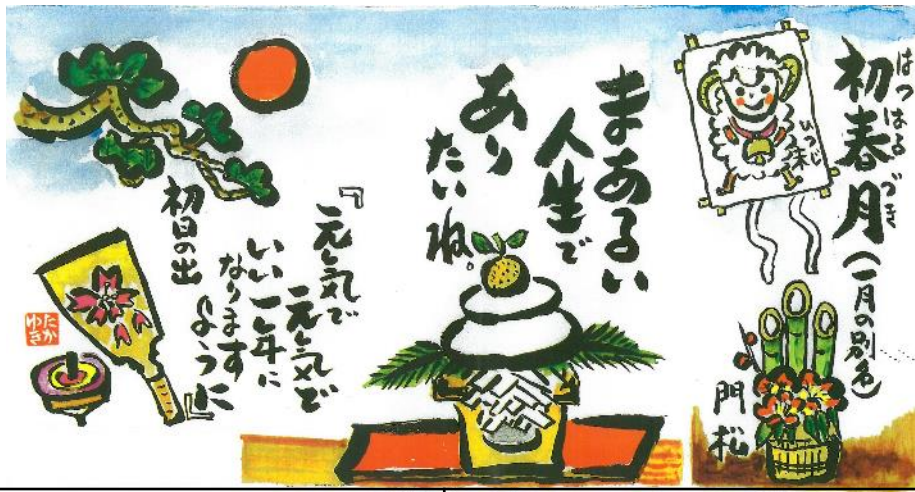 はつはるづき
初春月（一月の別名）
ひつじ
未
門松
まあるい
人生で
あり
たいね。
『元気で
元気で
いい一年に
なります
ように』
初日の出
たか
ゆき